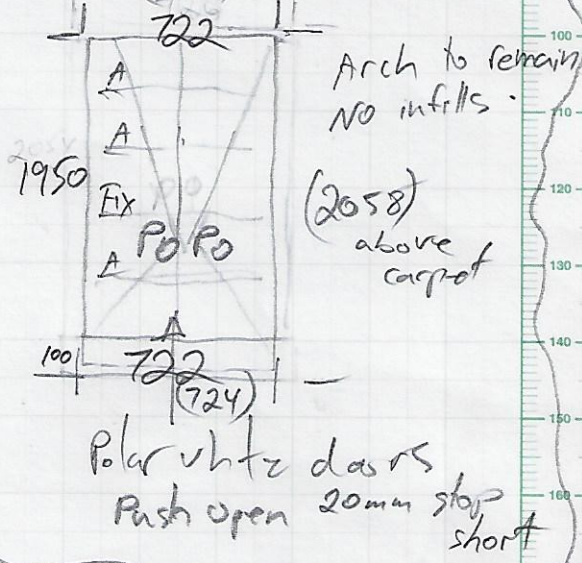 722
A
A
1950
Ex
PO PO
A
A
100
722
(724)
Arch to remain
No infills.
(2058)
above
carpet
Polar white doors
Push open 20mm stop
short
100
110
120
130
140
150
160